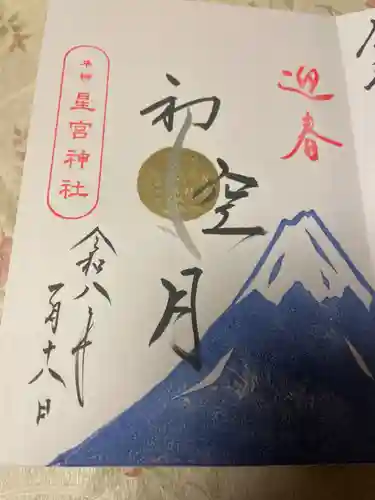 迎春
初空月
星宮神社
令和八年
一月十八日